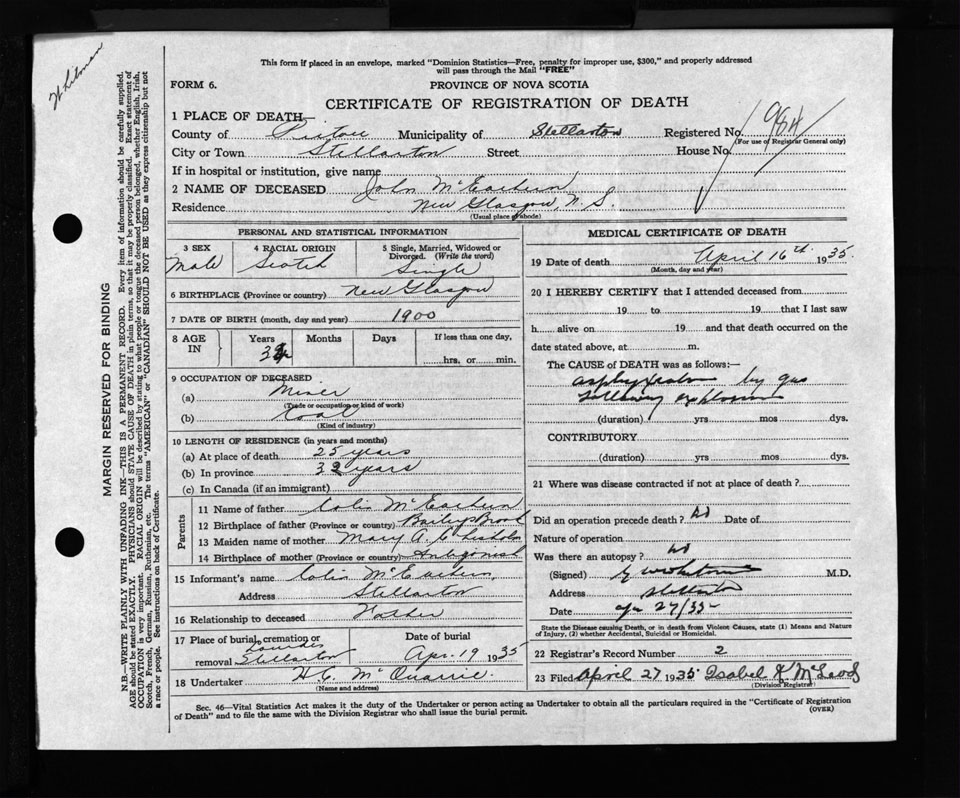 Whitman
This form if placed in an envelope, marked "Dominion Statistics—Free, penalty for improper use, $300," and properly addressed
will pass through the Mail "FREE"
FORM 6.
PROVINCE OF NOVA SCOTIA
CERTIFICATE OF REGISTRATION OF DEATH
1 PLACE OF DEATH—
County of Pictou Municipality of Stellarton Registered No. 984
(For use of Registrar General only)
City or Town Stellarton Street House No.
If in hospital or institution, give name
2 NAME OF DECEASED John McEachern
Residence New Glasgow, N.S.
(Usual place of abode)
PERSONAL AND STATISTICAL INFORMATION
3 SEX Male
4 RACIAL ORIGIN Scotch
5 Single, Married, Widowed or Divorced. (Write the word) Single
6 BIRTHPLACE (Province or country) New Glasgow
7 DATE OF BIRTH (month, day and year) 1900
8 AGE IN Years Months Days If less than one day,
hrs. or min.
9 OCCUPATION OF DECEASED
(a) Miner
(Trade or occupation or kind of work)
(b) Coal
(Kind of industry)
10 LENGTH OF RESIDENCE (in years and months)
(a) At place of death 25 years
(b) In province years
(c) In Canada (if an immigrant)
Parents
11 Name of father Colin McEachern
12 Birthplace of father (Province or country) Bailey Brook
13 Maiden name of mother Mary A. Chisholm
14 Birthplace of mother (Province or country) Antigonish
15 Informant's name Colin McEachern
Address Stellarton
16 Relationship to deceased Father
17 Place of burial, cremation or removal Lourdes Stellarton
Date of burial Apr. 19 1935
18 Undertaker H.C. McQuarrie.
(Name and address)
MEDICAL CERTIFICATE OF DEATH
19 Date of death April 16th 1935.
(Month, day and year)
20 I HEREBY CERTIFY that I attended deceased from
19 to 19 that I last saw
h alive on 19 and that death occurred on
date stated above, at m.
The CAUSE OF DEATH was as follows:
asphyxiation by gas
following explosion
(duration) yrs mos dys.
CONTRIBUTORY
(duration) yrs mos dys.
21 Where was disease contracted if not at place of death?
Did an operation precede death? no Date of
Nature of operation
Was there an autopsy? no
(Signed) M.D.
Address Stellarton
Date Apr 27/35
State the Disease causing Death, or in death from Violent Causes, state (1) Means and Nature
of Injury, (2) whether Accidental, Suicidal or Homicidal.
22 Registrar's Record Number 2
23 Filed April 27 1935 Isabel McLeod
(Division Registrar)
Sec. 46—Vital Statistics Act makes it the duty of the Undertaker or person acting as Undertaker to obtain all the particulars required in the "Certificate of Registration
of Death" and to file the same with the Division Registrar who shall issue the burial permit.
(OVER)
MARGIN RESERVED FOR BINDING
N.B.—WRITE PLAINLY WITH UNFADING INK—THIS IS A PERMANENT RECORD. Every item of information should be carefully supplied.
AGE should be stated EXACTLY. PHYSICIANS should STATE CAUSE OF DEATH in plain terms, so that it may be properly classified. Exact statement of
OCCUPATION is very important. RACIAL ORIGIN will be described by stating to what people or tongue the deceased person belonged, whether English, Irish,
Scotch, French, German, Russian, Ruthenian, etc. The terms "AMERICAN" or "CANADIAN" SHOULD NOT BE USED as they express citizenship but not
a race or people. See instructions on back of Certificate.